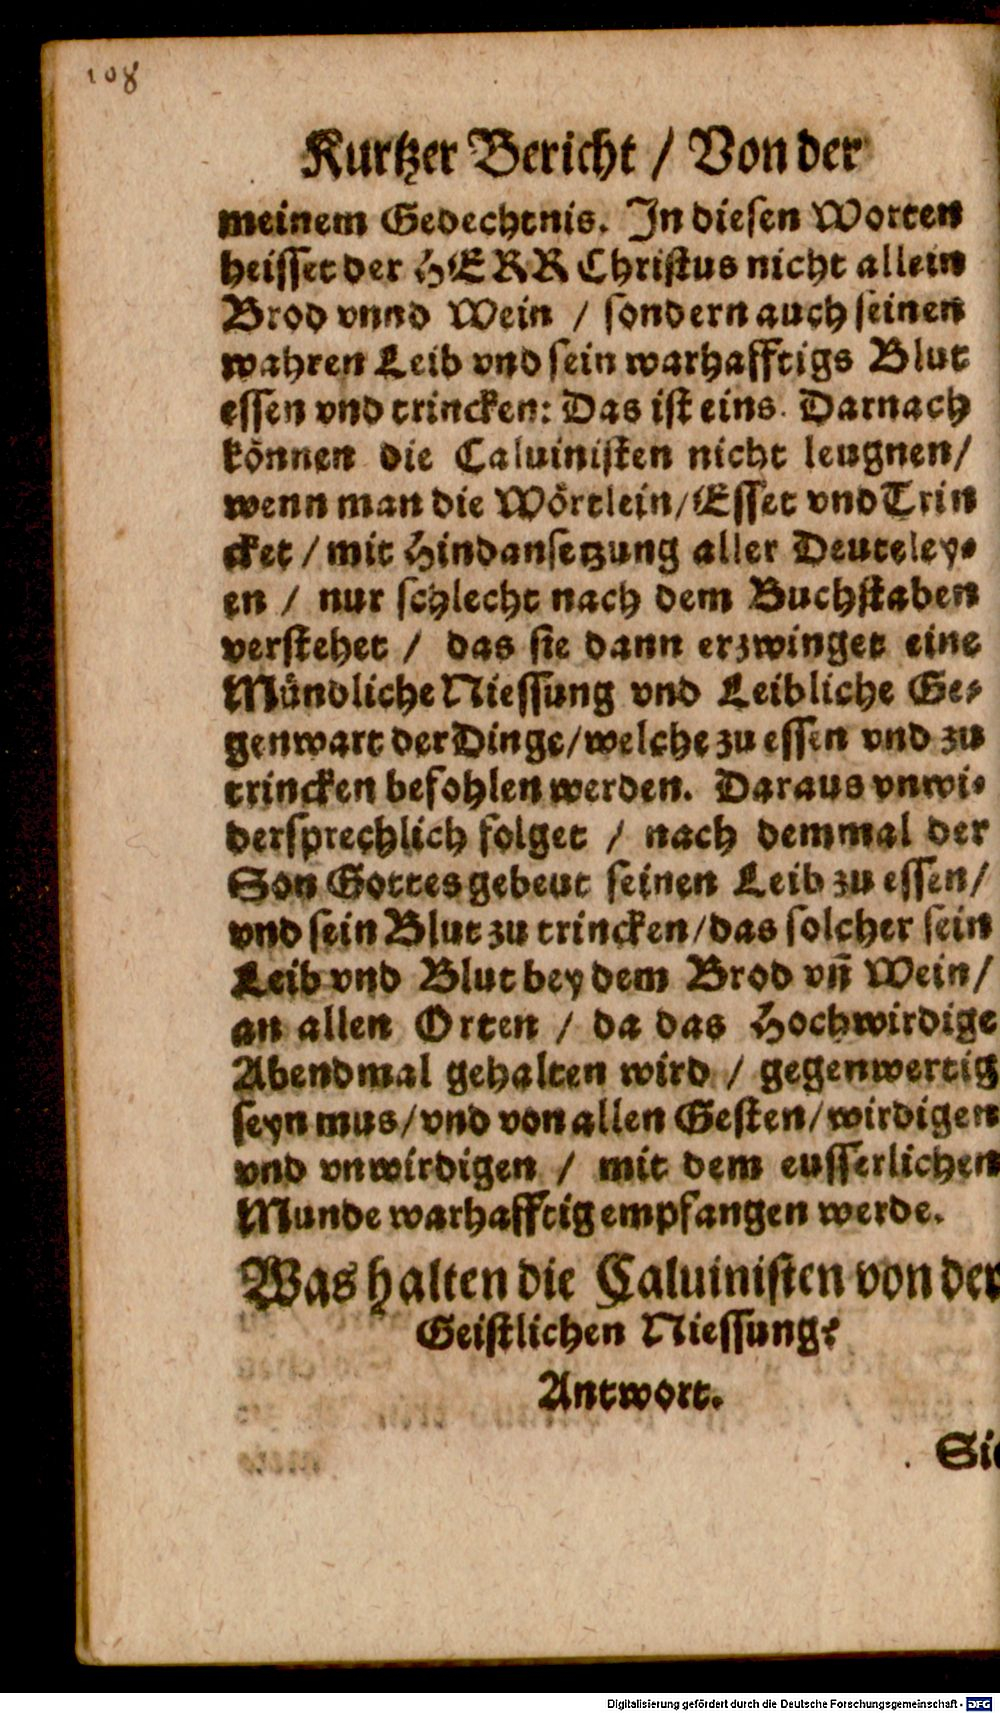 108
Kurtzer Bericht / Von der
meinem Gedechtnis. In diesen Worten
heisset der HERR Christus nicht allein
Brod vnnd Wein / sondern auch seinen
wahren Leib vnd sein warhafftigs Blut
essen vnd trincken: Das ist eins. Darnach
können die Caluinisten nicht leugnen/
wenn man die Wörtlein/Esset vnd Trin
cket / mit Hindansetzung aller Deuteley-
en / nur schlecht nach dem Buchstaben
verstehet / das sie dann erzwinget eine
Mündliche Niessung vnd Leibliche Ge-
genwart der Dinge/welche zu essen vnd zu
trincken befohlen werden. Daraus vnwi-
dersprechlich folget / nach demmal der
Son Gottes gebeut seinen Leib zu essen/
vnd sein Blut zu trincken/das solcher sein
Leib vnd Blut bey dem Brod vn̄ Wein/
an allen Orten / da das Hochwirdige
Abendmal gehalten wird / gegenwertig
seyn mus/vnd von allen Gesten/wirdigen
vnd vnwirdigen / mit dem eusserlichen
Munde warhafftig empfangen werde.
Was halten die Caluinisten von der
Geistlichen Niessung?
Antwort.
Sie
Digitalisierung gefördert durch die Deutsche Forschungsgemeinschaft - DFG